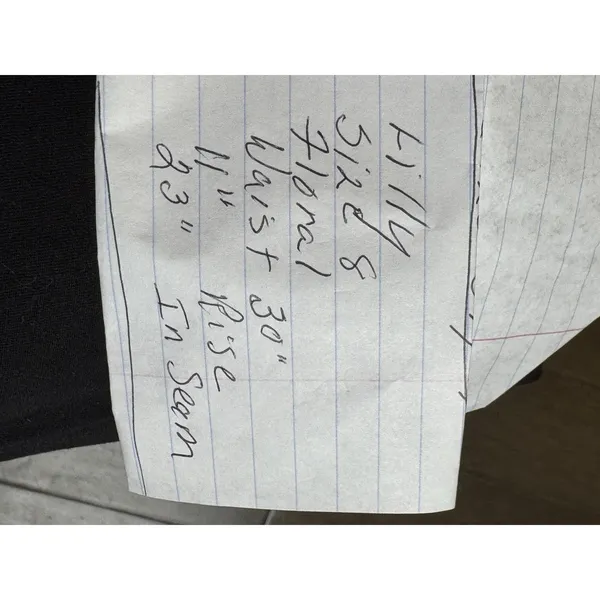 Lilly
Size 8
Floral
Waist 30"
11" Rise
23" In Seam